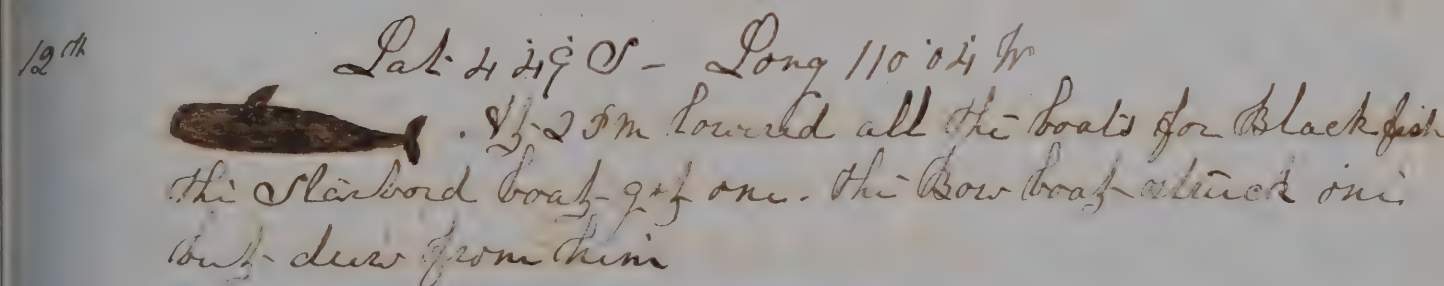 12th Lat 4 49 S - Long 110 04 W
. At 2 PM lowered all the boats for Blackfish
the Starbord boat got one. the Bow boat struck one
but drew from him